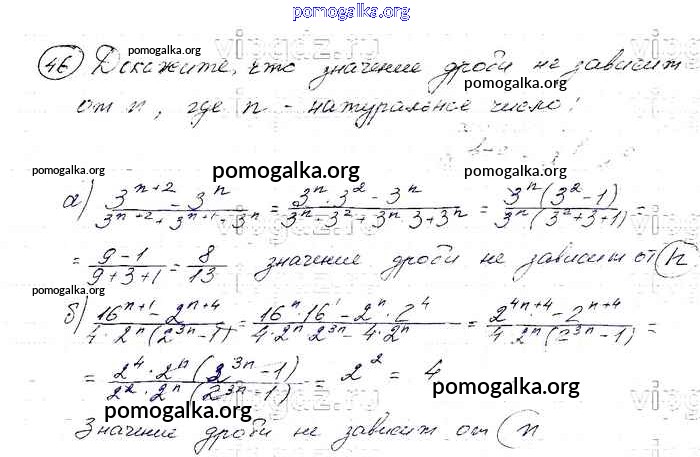 pomogalka.org
46 Докажите, что значение дроби не зависит
от n, где n - натуральное число!
а) (3^(n+2) - 3^n)/(3^(n+2) + 3^(n+1) + 3^n) = (3^n · 3^2 - 3^n)/(3^n · 3^2 + 3^n · 3 + 3^n) = (3^n(3^2 - 1))/(3^n(3^2 + 3 + 1)) =
= (9 - 1)/(9 + 3 + 1) = 8/13 значение дроби не зависит от n
б) (16^(n+1) - 2^(n+4))/(4 · 2^n(2^(3n) - 1)) = (16^n · 16^1 - 2^n · 2^4)/(4 · 2^n 2^(3n) - 4 · 2^n) = (2^(4n+4) - 2^(n+4))/(4 · 2^n(2^(3n) - 1)) =
= (2^4 · 2^n(2^(3n) - 1))/(2^2 · 2^n(2^(3n) - 1)) = 2^2 = 4
Значение дроби не зависит от n
pomogalka.org
pomogalka.org
pomogalka.org
pomogalka.org
pomogalka.org
pomogalka.org
pomogalka.org
pomogalka.org
pomogalka.org